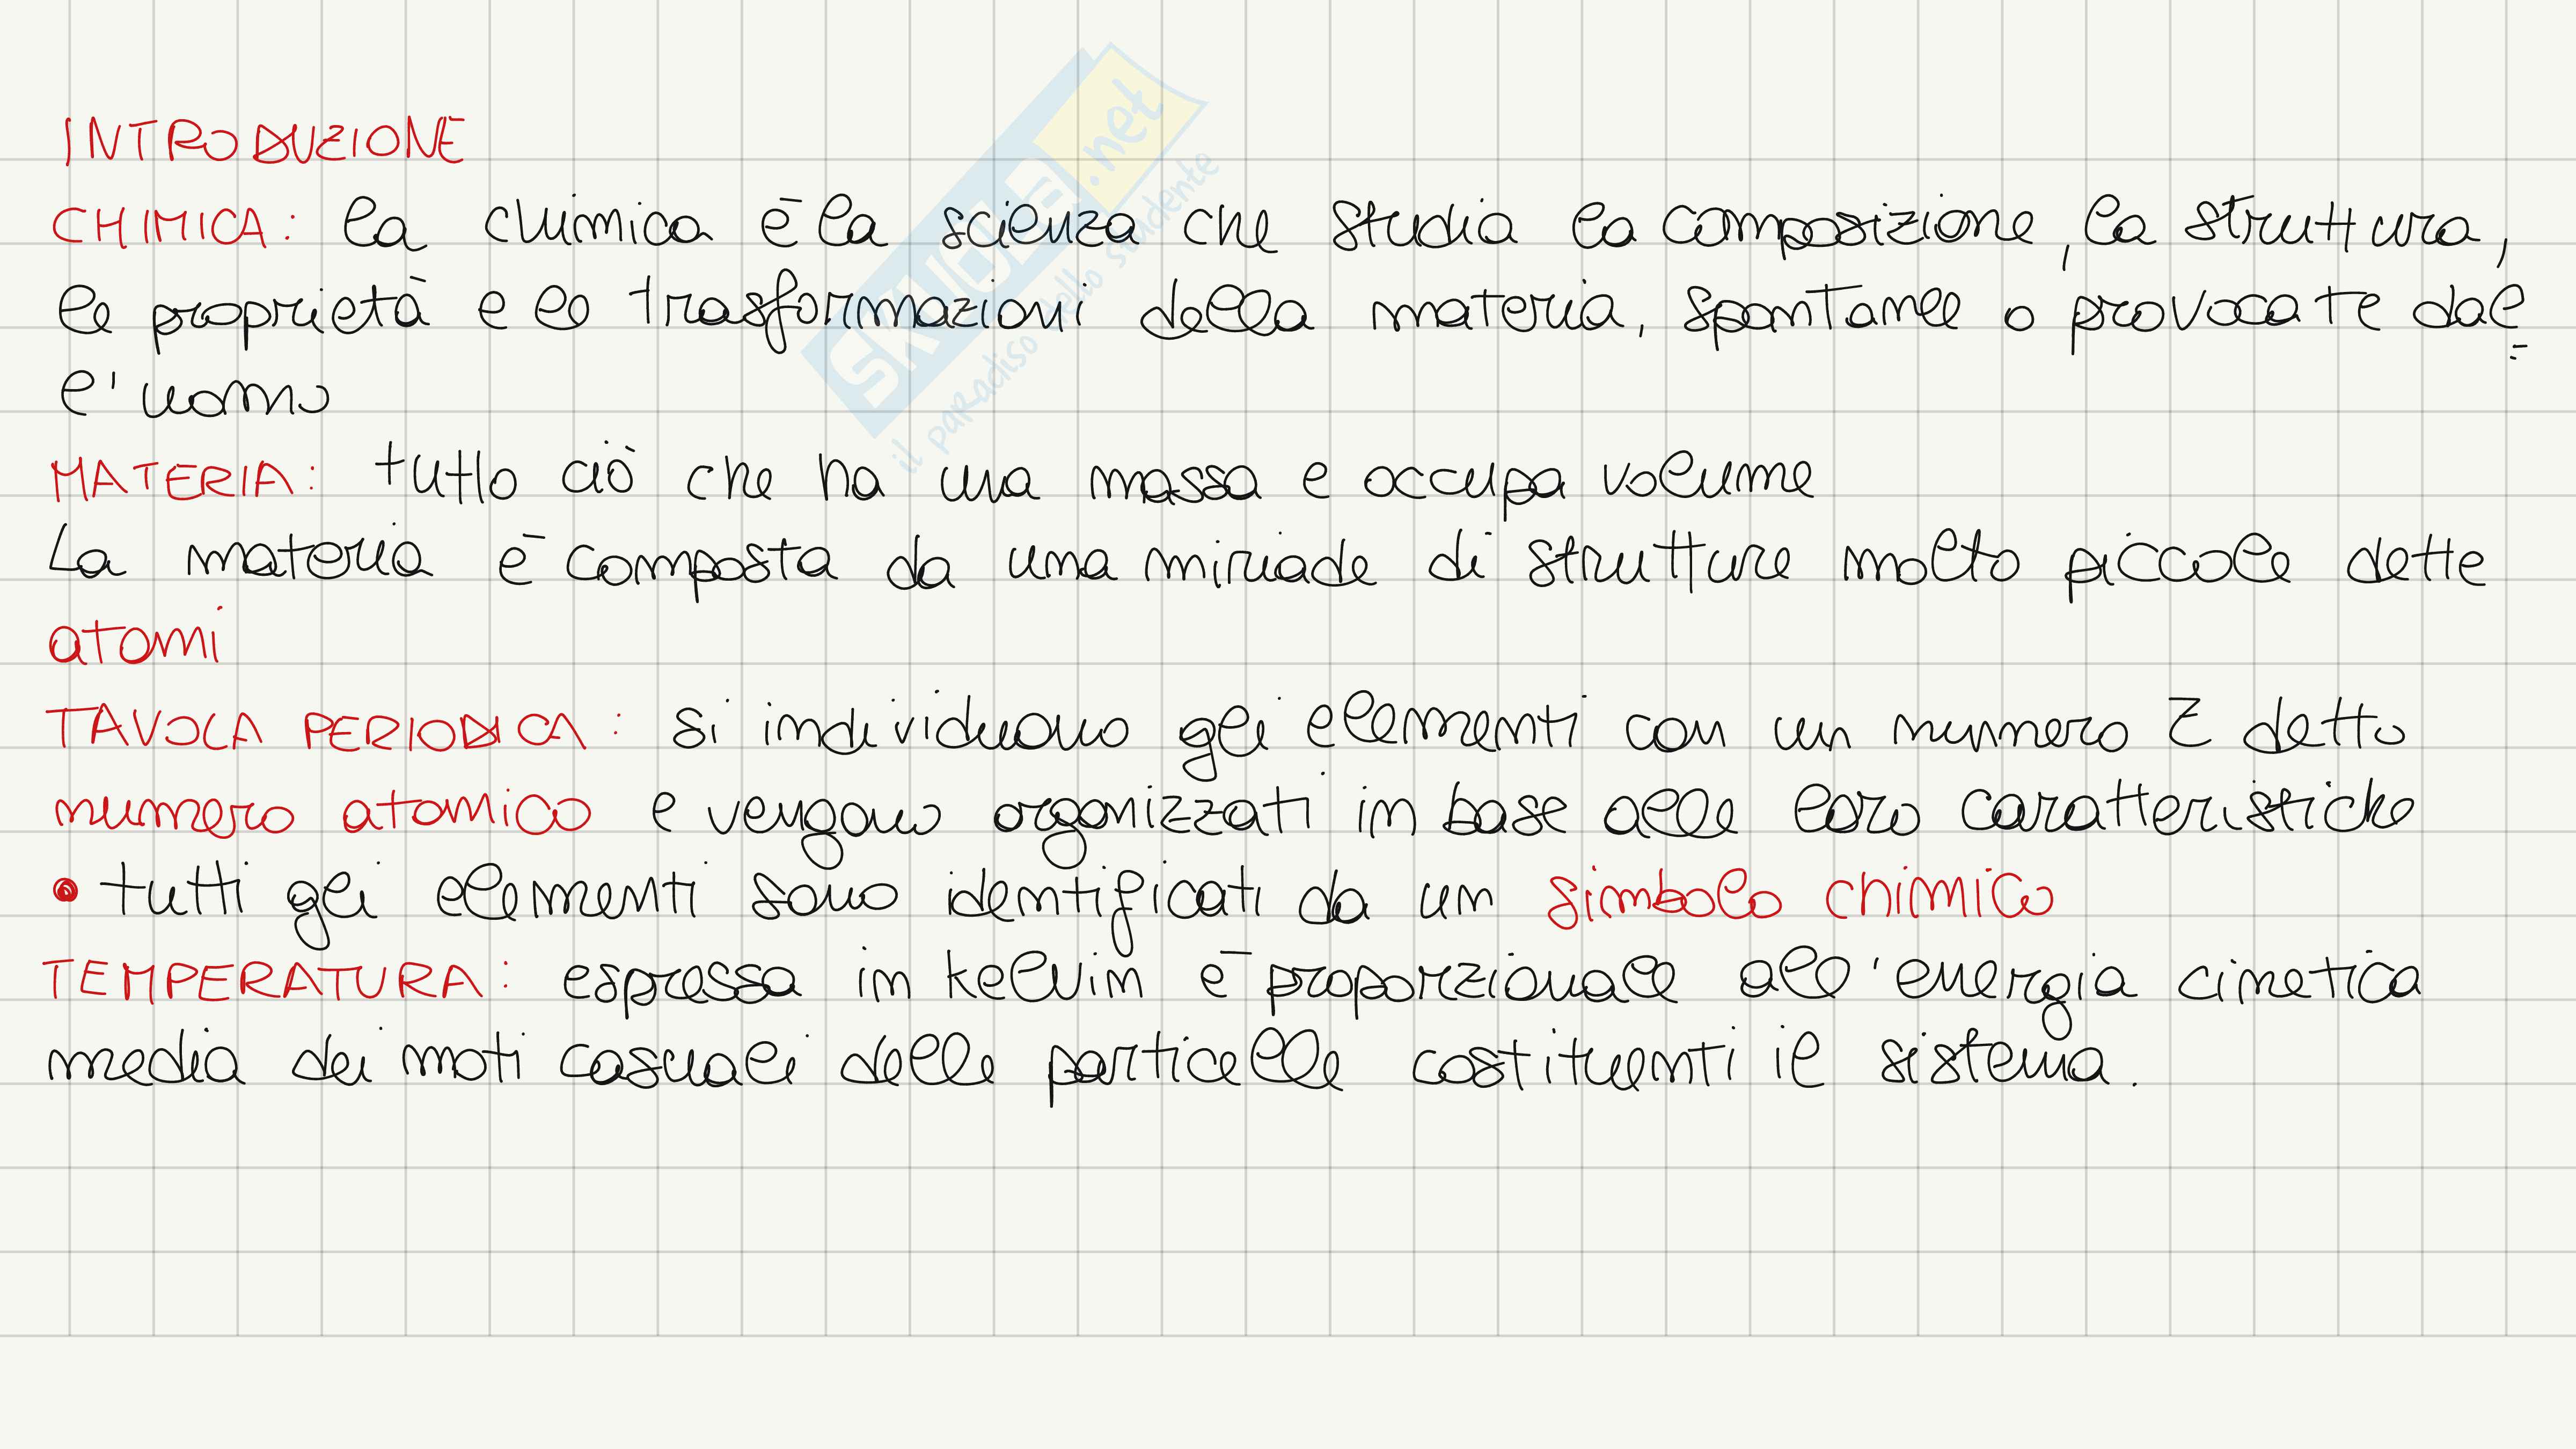 INTRODUZIONE
CHIMICA: la chimica è la scienza che studia la composizione, la struttura,
le proprietà e le trasformazioni della materia, spontanee o provocate dal
l'uomo
MATERIA: tutto ciò che ha una massa e occupa volume
La materia è composta da una miriade di strutture molto piccole dette
atomi
TAVOLA PERIODICA: si individuano gli elementi con un numero Z detto
numero atomico e vengono organizzati in base alle loro caratteristiche
• tutti gli elementi sono identificati da un simbolo chimico
TEMPERATURA: espressa in kelvin è proporzionale all'energia cinetica
media dei moti casuali delle particelle costituenti il sistema.
SKUOLA.net
il paradiso dello studente